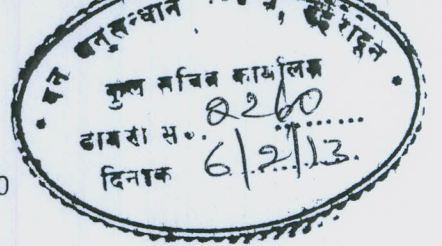 वन अनुसन्धान देहरादून
कुल सचिव कार्यालय
डायरी स०. 8260
दिनांक 6/2/13.
0